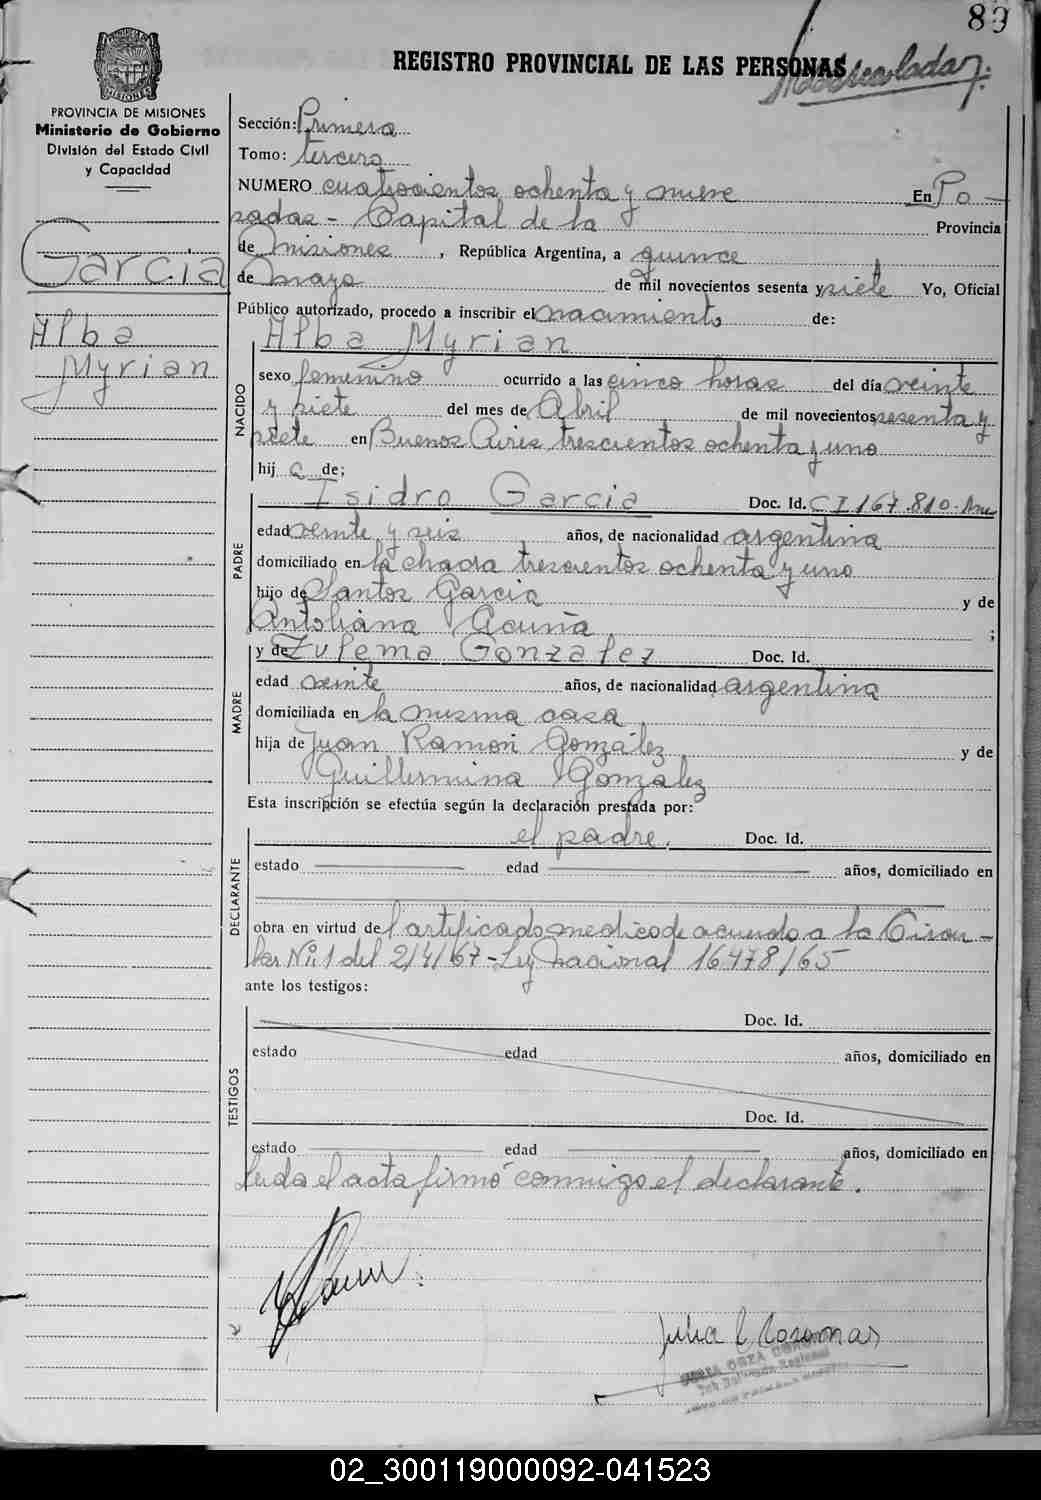 89
REGISTRO PROVINCIAL DE LAS PERSONAS
MISIONES
PROVINCIA DE MISIONES
Ministerio de Gobierno
División del Estado Civil
y Capacidad
Garcia
Alba
Myrian
Sección: Primera
Tomo: tercero
NUMERO cuatrocientos ochenta y nueve En Po-
sadas - Capital de la Provincia
de Misiones, República Argentina, a quince
de Mayo de mil novecientos sesenta y siete Yo, Oficial
Público autorizado, procedo a inscribir el nacimiento de:
Alba Myrian
NACIDO
sexo femenino ocurrido a las cinco horas del día veinte
y siete del mes de Abril de mil novecientos sesenta y
siete en Buenos Aires trescientos ochenta y uno
hij a de;
PADRE
Isidro Garcia Doc. Id. C I 167.810-
edad veinte y seis años, de nacionalidad argentina
domiciliado en la chacra trescientos ochenta y uno
hijo de Santos Garcia y de
Antoliana Acuña ;
MADRE
y de Zulema Gonzalez Doc. Id.
edad veinte años, de nacionalidad argentina
domiciliada en la misma casa
hija de Juan Ramón González y de
Guillermina González
Esta inscripción se efectúa según la declaración prestada por:
DECLARANTE
el padre. Doc. Id.
estado edad años, domiciliado en
obra en virtud de certificado medico de acuerdo a la Circu-
lar Nº 1 del 2/4/67 - Ley Nacional 16478/65
ante los testigos:
TESTIGOS
Doc. Id.
estado edad años, domiciliado en
Doc. Id.
estado edad años, domiciliado en
Leida el acta firmó conmigo el declarante.
02_300119000092-041523